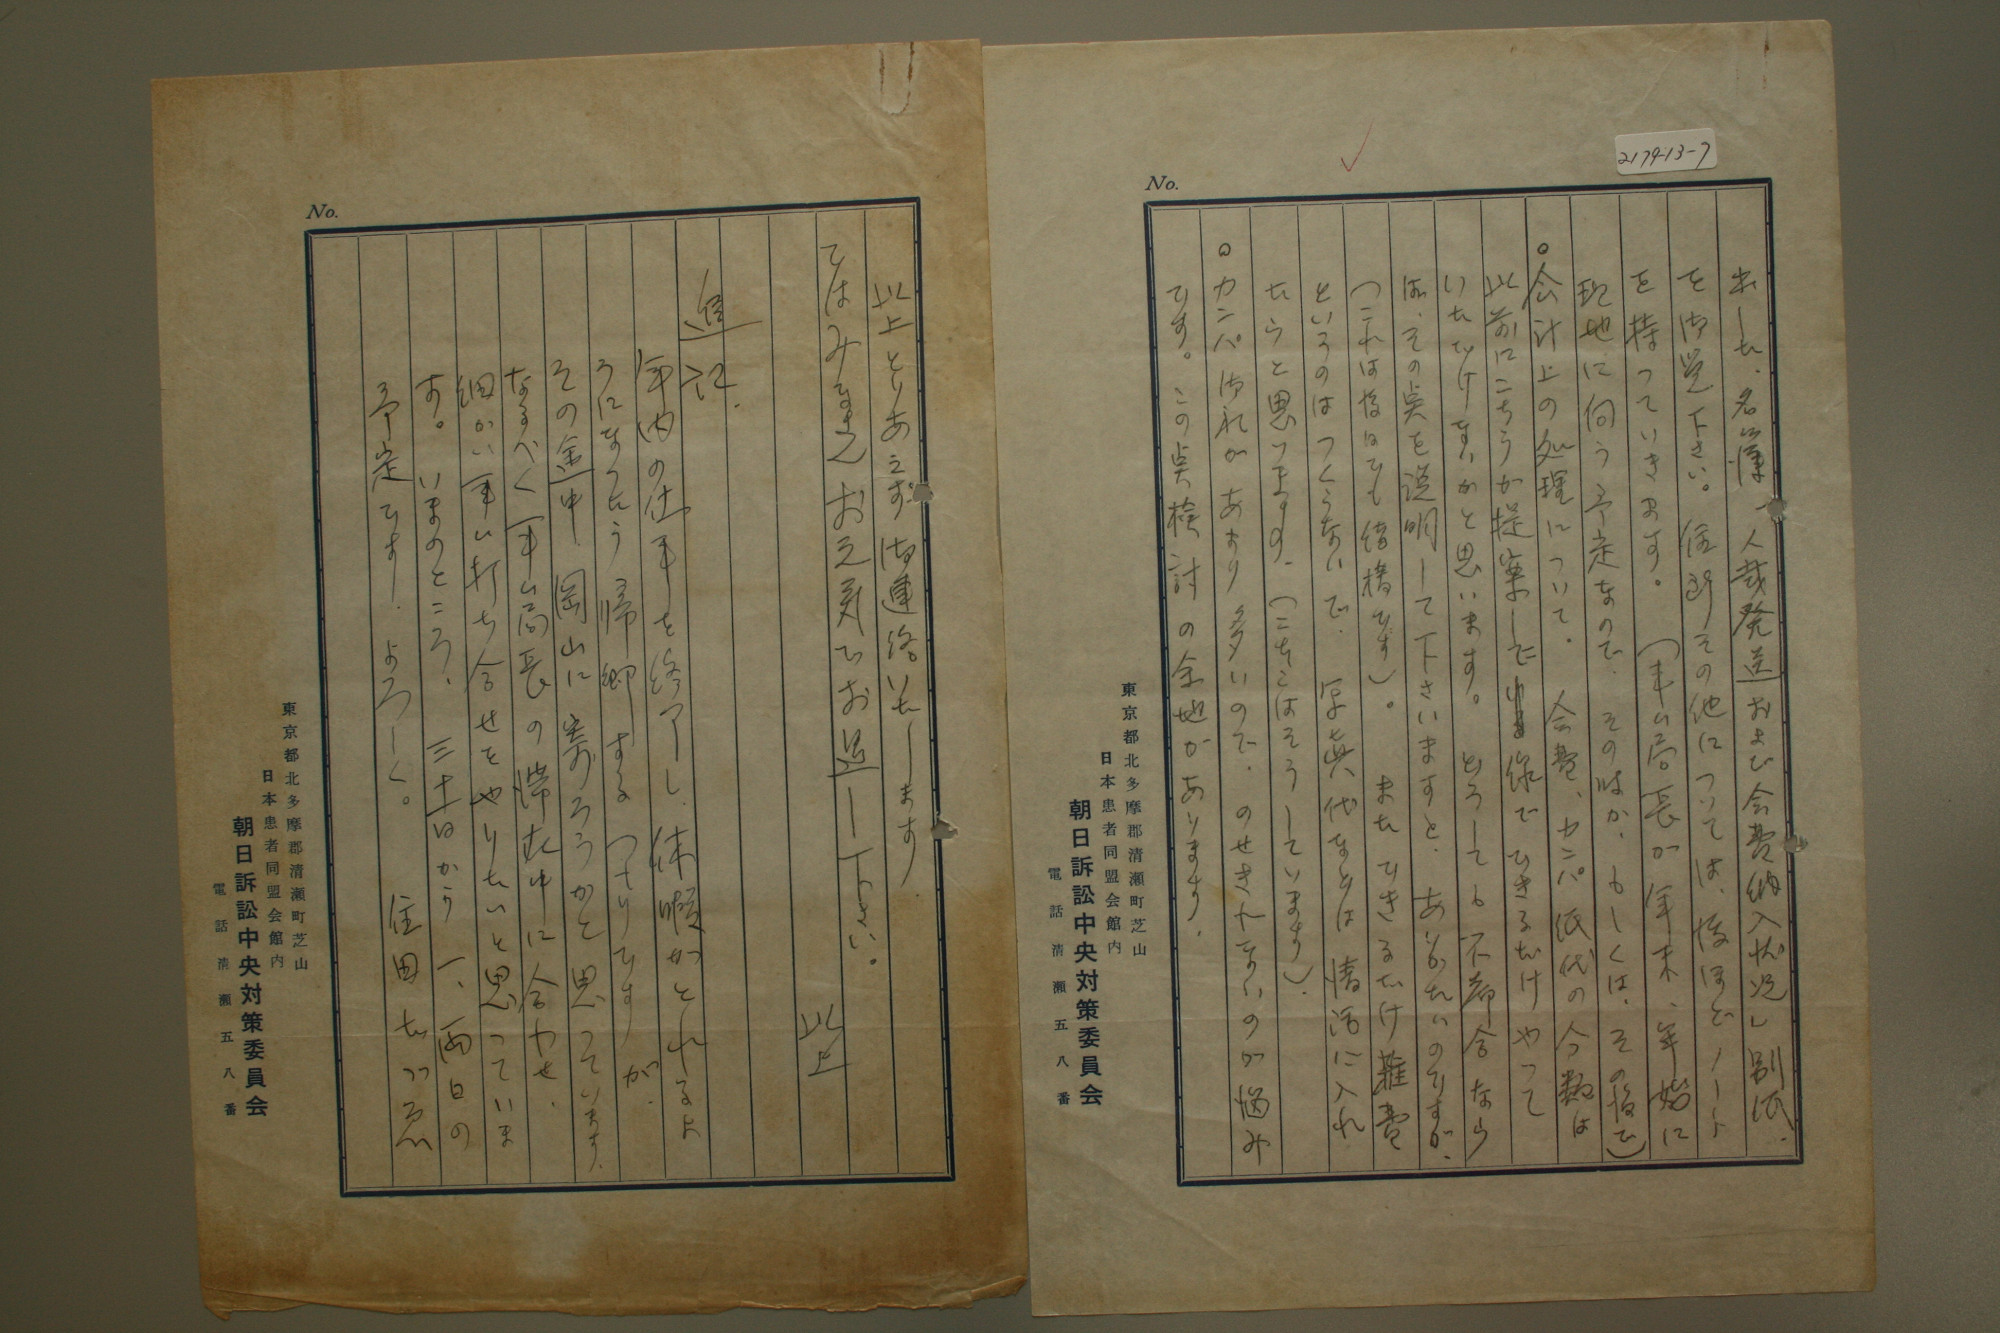 2174-13-7
No.
ました。名簿、人裁発送および会費納入状況し別紙
を御覧下さい。住所その他については、後ほどノート
を持っていきます。(事ム局長が年末、年始に
現地に伺う予定なので、その時か、もしくは、その後で)
○会計上の処理について。会費、カンパ、紙代の分類は
此前にこちらが提案した線でできるだけやって
いただけまいかと思います。どうしても不都合なら
ば、その点を説明して下さいますと、ありがたいのですが、
(これは後ほでも結構です)。またできるだけ雑費
というのはつくらないで、写真代などは情活に入れ
たらと思いますの。(こちらはそうしています)。
○カンパ御礼があまり多いので、のせきれないのが悩み
です。この点検討の余地があります。
東京都北多摩郡清瀬町芝山
日本患者同盟会館内
朝日訴訟中央対策委員会
電話清瀬五八番
No.
以上とりあえず御連絡いたします。
ではみなさんお元気でお過し下さい。
以上
追記.
年内の仕事を終了し、休暇がとれるよ
うになったら帰郷するつもりですが、
その途中、岡山に寄ろうかと思っています。
なるべく事ム局長の滞在中に合わせ、
細かい事ム打ち合せをやりたいと思っていま
す。いまのところ、三十日から一、両日の
予定です。よろしく。
東京都北多摩郡清瀬町芝山
日本患者同盟会館内
朝日訴訟中央対策委員会
電話清瀬五八番